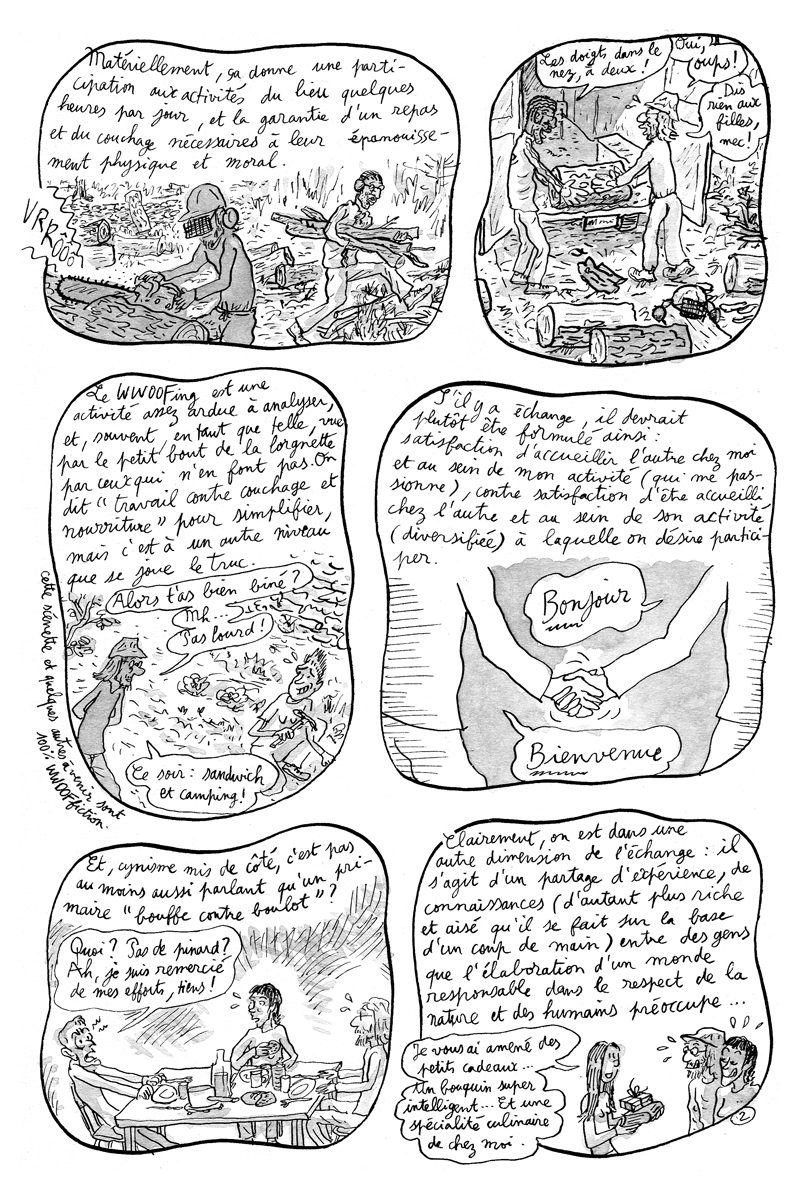 Matériellement, ça donne une parti-
cipation aux activités du lieu quelques
heures par jour, et la garantie d'un repas
et du couchage nécessaires à leur épanouisse-
ment physique et moral.
VRRôôô
Les doigts dans le
nez, à deux !
Oui,
oups!
Dis
rien aux
filles,
mec!
Le WWOOFing est une
activité assez ardue à analyser,
et, souvent, en tant que telle, vue
par le petit bout de la lorgnette
par ceux qui n'en font pas. On
dit "travail contre couchage et
nourriture" pour simplifier,
mais c'est à un autre niveau
que se joue le truc.
Alors t'as bien biné ?
Mh.
Pas lourd !
Ce soir : sandwich
et camping !
cette scénette et quelques autres à venir sont
100% WWOOFfiction.
S'il y a échange, il devrait
plutôt être formulé ainsi :
satisfaction d'accueillir l'autre chez moi
et au sein de mon activité (qui me pas-
sionne), contre satisfaction d'être accueilli
chez l'autre et au sein de son activité
(diversifiée) à laquelle on désire partici-
per.
Bonjour
Bienvenue
Et, cynisme mis de côté, c'est pas
au moins aussi parlant qu'un pri-
maire "bouffe contre boulot" ?
Quoi ? Pas de pinard ?
Ah, je suis remercié
de mes efforts, tiens !
Clairement, on est dans une
autre dimension de l'échange : il
s'agit d'un partage d'expérience, de
connaissances (d'autant plus riche
et aisé qu'il se fait sur la base
d'un coup de main) entre des gens
que l'élaboration d'un monde
responsable dans le respect de la
nature et des humains préoccupe...
Je vous ai amené des
petits cadeaux...
Un bouquin super
intelligent... Et une
spécialité culinaire
de chez moi.
2